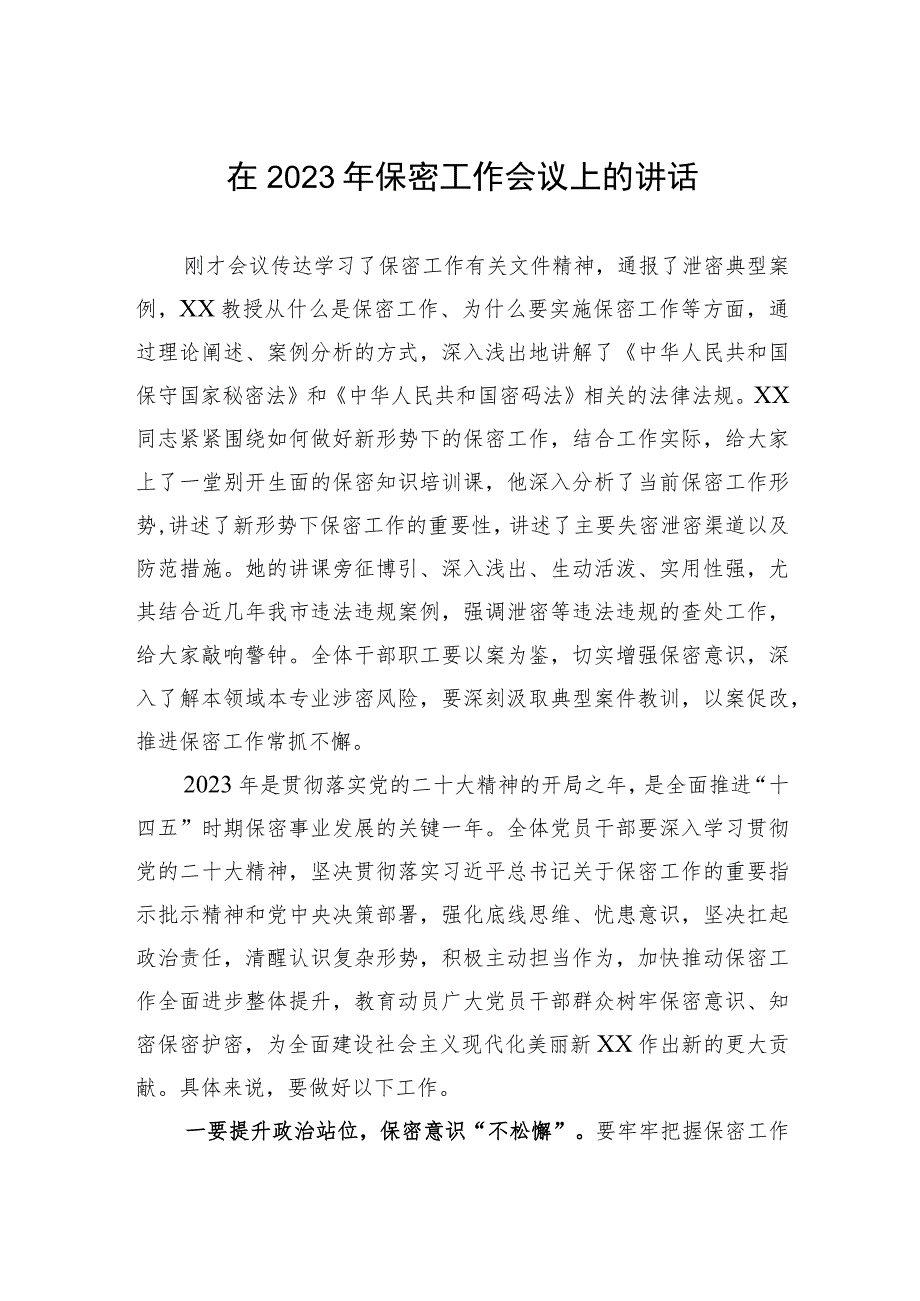 在 2023 年保密工作会议上的讲话
刚才会议传达学习了保密工作有关文件精神，通报了泄密典型案
例，XX 教授从什么是保密工作、为什么要实施保密工作等方面，通
过理论阐述、案例分析的方式，深入浅出地讲解了《中华人民共和国
保守国家秘密法》和《中华人民共和国密码法》相关的法律法规。XX
同志紧紧围绕如何做好新形势下的保密工作，结合工作实际，给大家
上了一堂别开生面的保密知识培训课，他深入分析了当前保密工作形
势,讲述了新形势下保密工作的重要性，讲述了主要失密泄密渠道以及
防范措施。她的讲课旁征博引、深入浅出、生动活泼、实用性强，尤
其结合近几年我市违法违规案例，强调泄密等违法违规的查处工作，
给大家敲响警钟。全体干部职工要以案为鉴，切实增强保密意识，深
入了解本领域本专业涉密风险，要深刻汲取典型案件教训，以案促改，
推进保密工作常抓不懈。
2023 年是贯彻落实党的二十大精神的开局之年，是全面推进“十
四五”时期保密事业发展的关键一年。全体党员干部要深入学习贯彻
党的二十大精神，坚决贯彻落实习近平总书记关于保密工作的重要指
示批示精神和党中央决策部署，强化底线思维、忧患意识，坚决扛起
政治责任，清醒认识复杂形势，积极主动担当作为，加快推动保密工
作全面进步整体提升，教育动员广大党员干部群众树牢保密意识、知
密保密护密，为全面建设社会主义现代化美丽新 XX 作出新的更大贡
献。具体来说，要做好以下工作。
一要提升政治站位，保密意识“不松懈”。要牢牢把握保密工作